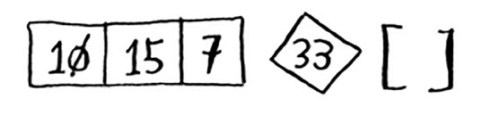 10 15 7 33 [ ]